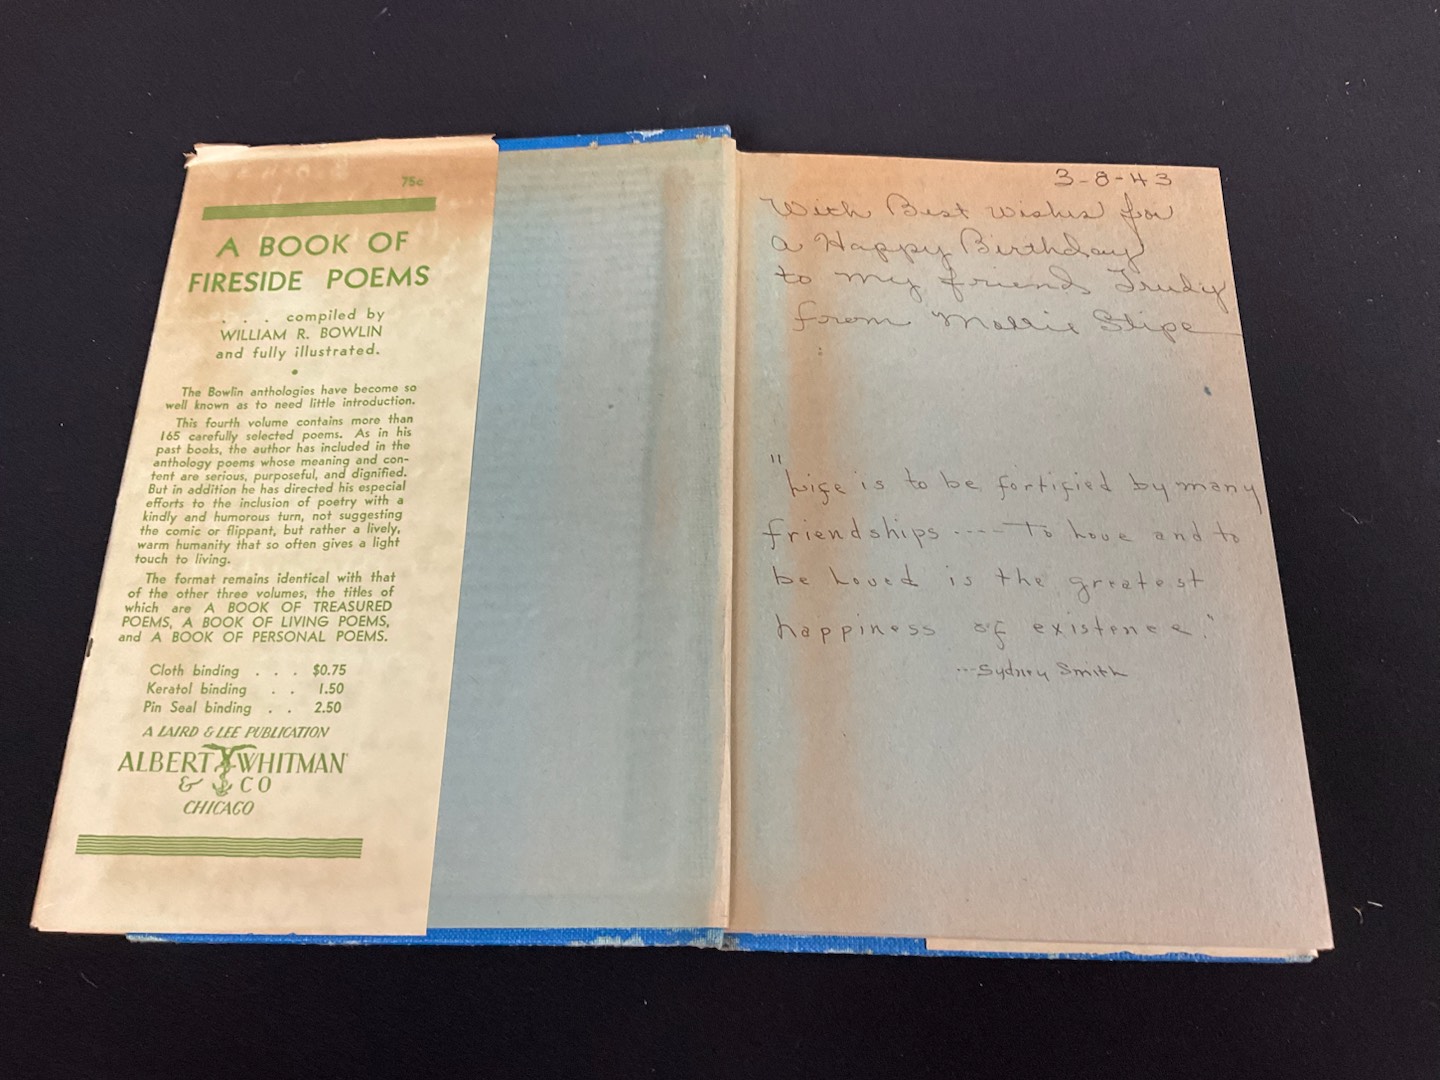 75c
A BOOK OF
FIRESIDE POEMS
. . . compiled by
WILLIAM R. BOWLIN
and fully illustrated.
The Bowlin anthologies have become so
well known as to need little introduction.
This fourth volume contains more than
165 carefully selected poems. As in his
past books, the author has included in the
anthology poems whose meaning and con-
tent are serious, purposeful, and dignified.
But in addition he has directed his especial
efforts to the inclusion of poetry with a
kindly and humorous turn, not suggesting
the comic or flippant, but rather a lively,
warm humanity that so often gives a light
touch to living.
The format remains identical with that
of the other three volumes, the titles of
which are A BOOK OF TREASURED
POEMS, A BOOK OF LIVING POEMS,
and A BOOK OF PERSONAL POEMS.
Cloth binding . . . $0.75
Keratol binding . . 1.50
Pin Seal binding . . 2.50
A LAIRD & LEE PUBLICATION
ALBERT WHITMAN
& CO
CHICAGO
3-8-43
With Best wishes for
a Happy Birthday
to my friend Trudy
from Mollie Slipe
"Life is to be fortified by many
friendships ---- To love and to
be loved is the greatest
happiness of existence."
---Sydney Smith